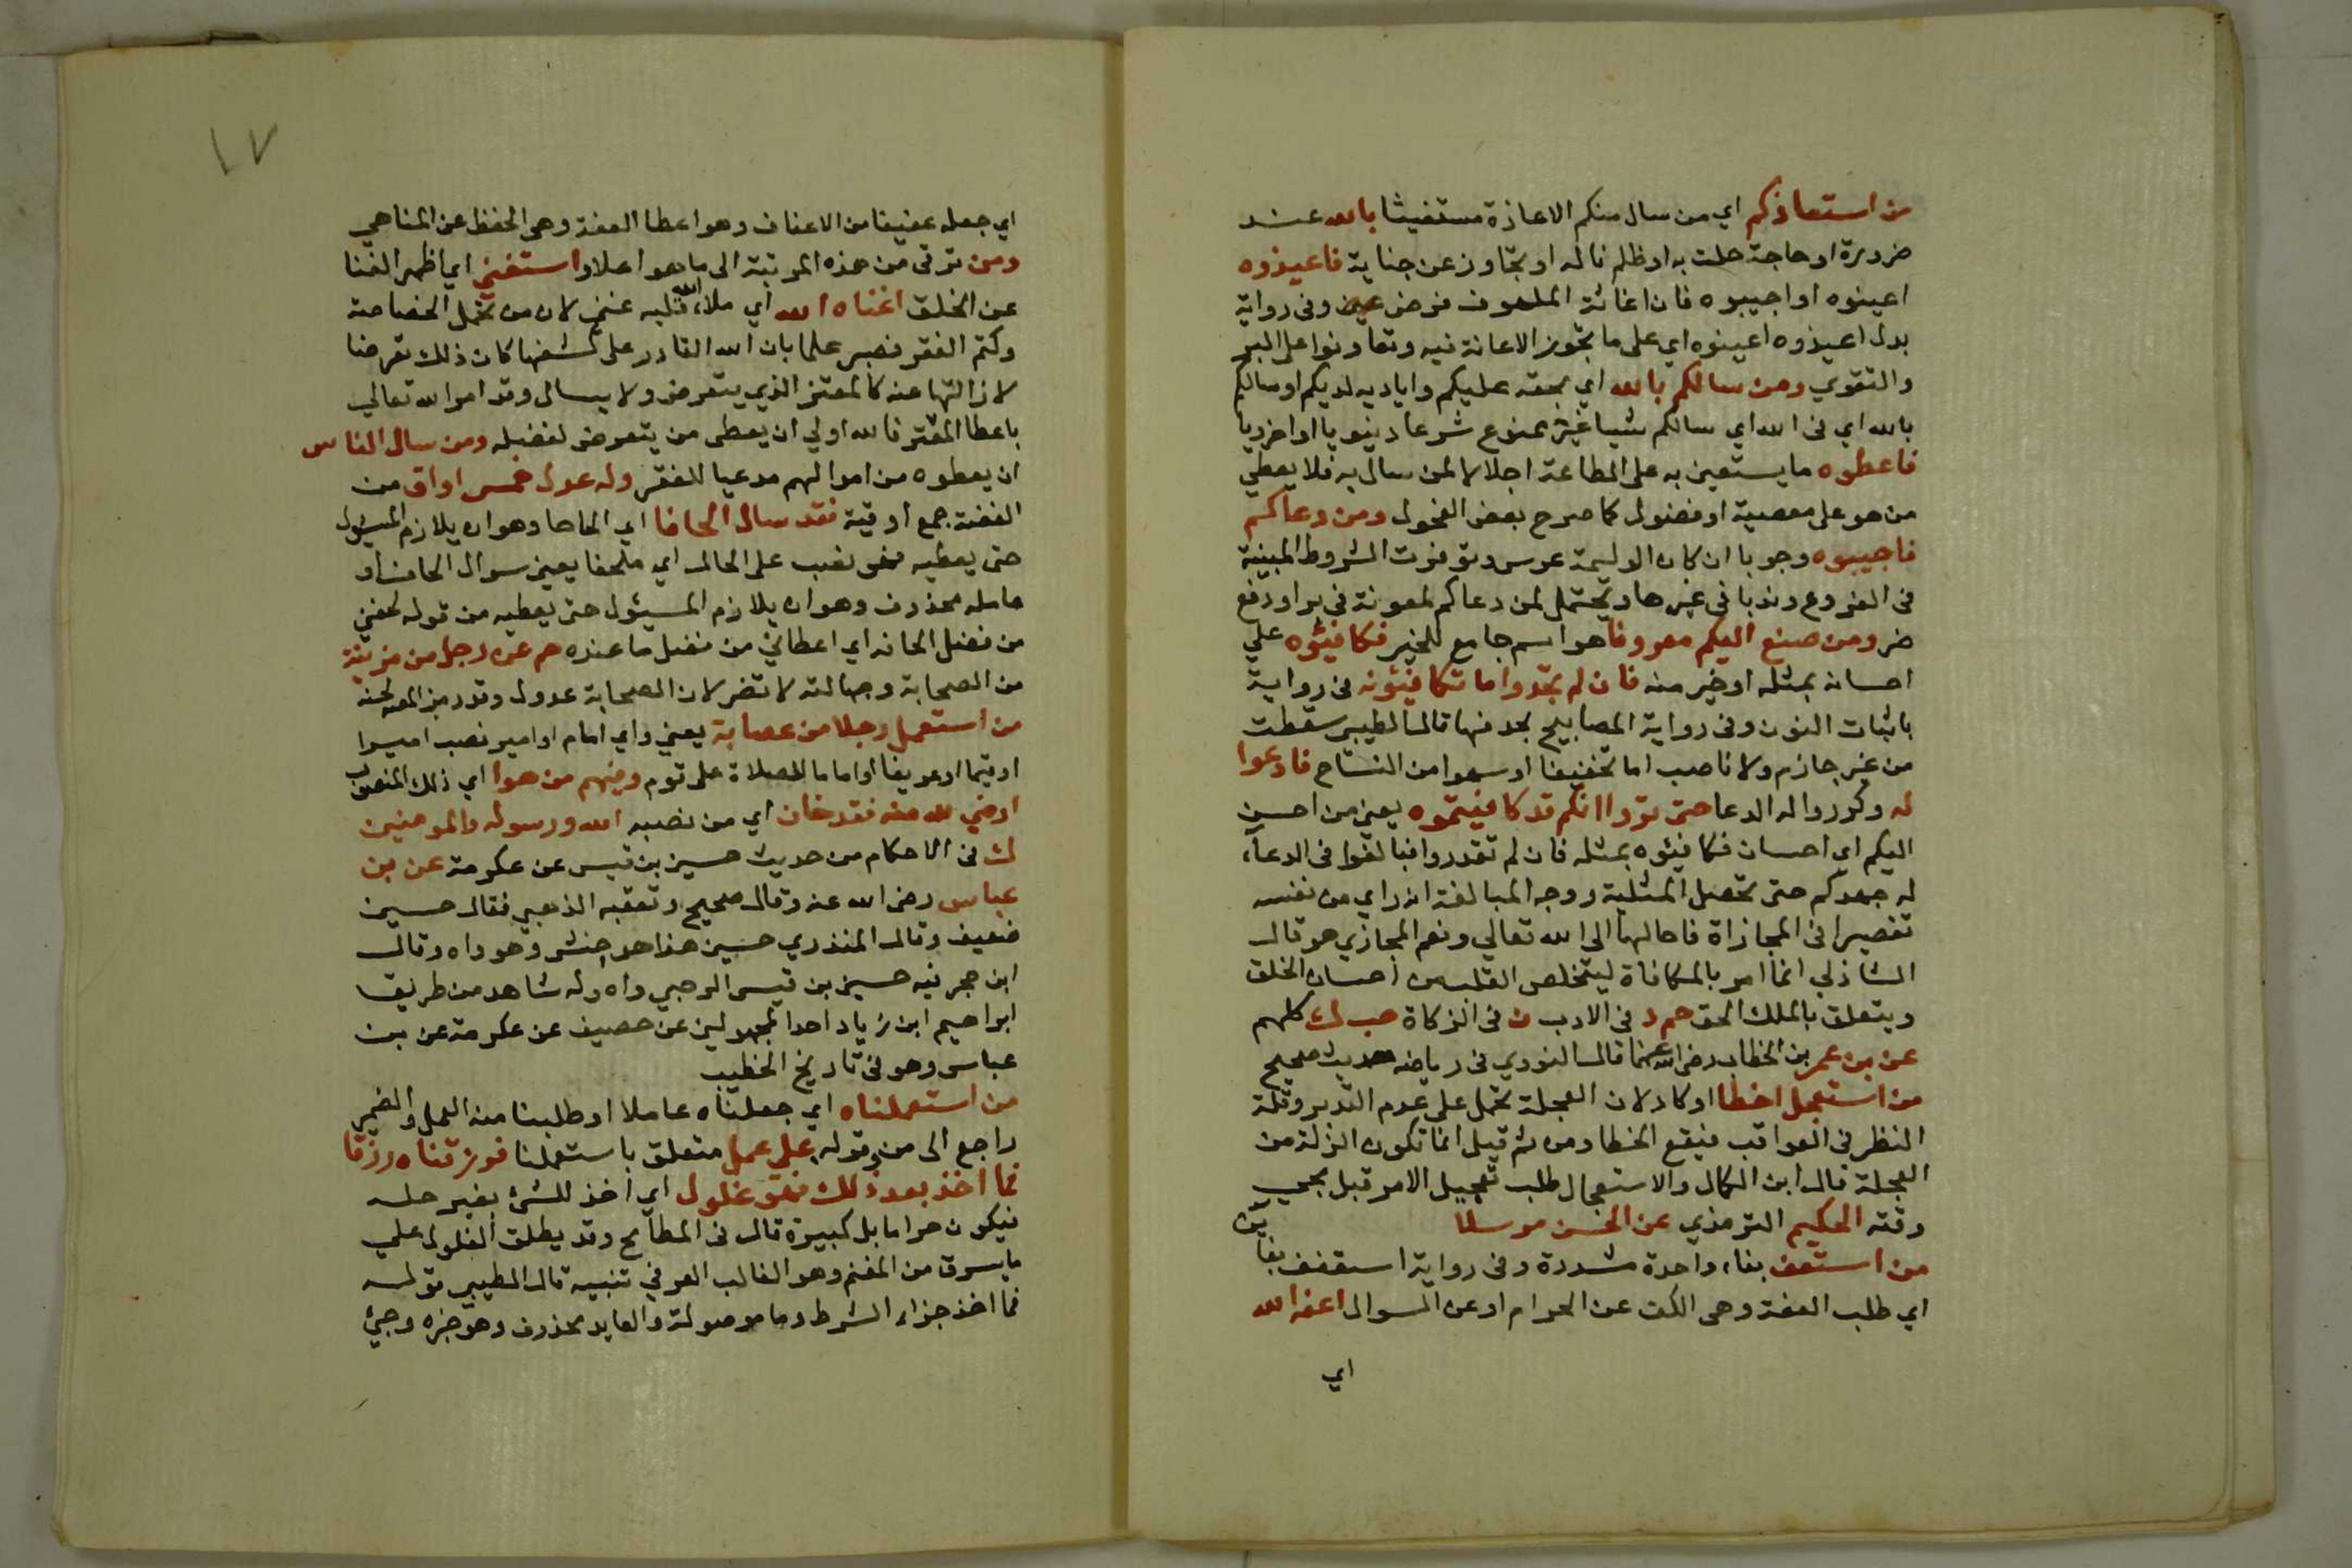 من استعاذكم اي من سال منكم الاعاذة مستغيثا بالله عند
ضرورة او حاجة حلت به او ظلم ناله او تجاوز عن جناية فاعيذوه
اعينوه او اجيبوه فان اغاثة الملهوف فرض عين وفى رواية
بدل اعيذوه اعينوه اي على ما تجوز الاعانة فيه وتعاونوا على البر
والتقوي ومن سالكم بالله اي بحقه عليكم واياديه لديكم او سالكم
بالله اي فى الله اي سالكم شيا غير ممنوع شرعا دينويا او اخرويا
فاعطوه ما يستعين به على الطاعة اجلالا لمن سال به فلا يعطي
من هو على معصية او فضول كما صرح بعض الفحول ومن دعاكم
فاجيبوه وجوبا ان كان الوليمة عرس وتوفرت الشروط المبينة
فى الفروع وندبا فى غيرها ويحتمل لمن دعاكم لمعونة فى بر او دفع
ضر ومن صنع اليكم معروفا هو اسم جامع للخير فكافيئوه علي
احسانه بمثله او خير منه فان لم تجدوا ما تكافيئونه فى رواية
باثبات النون وفى رواية المصابيح بحذفها قال الطيبي سقطت
من غير جازم ولا ناصب اما تخفيفا او سهوا من النساخ فادعوا
له وكرروا له الدعا حتى تروا انكم قد كافيتموه يعنى من احسن
اليكم اي احسان فكافيئوه بمثله فان لم تقدروا فبالغوا فى الدعاء
له جهدكم حتى تحصل المثلية ووجه المبالغة انه راي من نفسه
تقصيرا فى المجازاة فاحالها الى الله تعالي ونعم المجازي هو قال
الشاذلي انما امر بالمكافاة ليتخلص القلب من احسان الخلق
ويتعلق بالملك الحق حم د فى الادب ن فى الزكاة حب ك كلهم
عن بن عمر بن الخطاب رضى الله عنهما قال النووي فى رياضه حديث صحيح
من استعجل اخطا او كاد لان العجلة تحمل على عدم التدبر وقلة
النظر فى العواقب فيقع الخطا ومن ثم قيل انما تكون الزلة من
العجلة قال ابن الكمال والاستعجال طلب تعجيل الامر قبل مجي
وقته الحكيم الترمذي عن الحسن مرسلا
من استعف بفاء واحدة مشددة وفى رواية استعفف بفاين
اي طلب العفة وهى الكف عن الحرام او عن السوال اعفه الله
اي
١٧
اي جعله عفيفا من الاعفاف وهو اعطا العفة وهى الحفظ عن المناهي
ومن ترقى من هذه المرتبة الى ما هو اعلا واستغنى اي اظهر الغنا
عن الخلق اغناه الله اي ملاء الله قلبه غنى لان من تحمل الخصاصة
وكتم الفقر فصبر علما بان الله القادر على كشفها كان ذلك تعرضا
لازالتها عنه كالمعتر الذي يتعرض ولا يسال وقد امر الله تعالي
باعطا المعتر فالله اولي ان يعطى من يتعرض لفضله ومن سال الناس
ان يعطوه من اموالهم مدعيا للفقر وله عدل خمس اواق من
الفضة جمع اوقية فقد سال الحافا اي الحاحا وهو ان يلازم المسيول
حتى يعطيه فهو نصب على الحال اي ملحفا يعنى سوال الحاف او
عامله محذوف وهو ان يلازم المسيئول حتى يعطيه من قوله لحفنى
من فضل لحافه اي اعطاني من فضل ما عنده حم عن رجل من مزينة
من الصحابة وجهالته لا تضر لان الصحابة عدول وقد رمز المص لحسنه
من استعمل رجلا من عصابة يعنى واي امام او امير نصب اميرا
او قيما او عريفا او اماما للصلاة على قوم وفيهم من هوا اي ذلك المنصوب
ارضي لله منه فقد خان اي من نصبه الله ورسوله والمومنين
ك فى الاحكام من حديث حسين بن قيس عن عكرمة عن بن
عباس رضى الله عنه وقال صحيح وتعقبه الذهبي فقال حسين
ضعيف وقال المنذري حسين هذا هو حنش وهو واه وقال
ابن حجر فيه حسين بن قيس الرحبي واه وله شاهد من طريق
ابراهيم ابن زياد احد المجهولين عن خصيف عن عكرمة عن بن
عباس وهو فى تاريخ الخطيب
من استعملناه اي جعلناه عاملا او طلبنا منه العمل والضمير
راجع الى من وقوله على عمل متعلق باستعملنا فرزقناه رزقا
فما اخذ بعد ذلك فهو غلول اي اخذ للشئ بغير حله
فيكون حراما بل كبيرة قال فى المطامح وقد يطلق الغلول علي
ما يسرق من المغنم وهو الغالب العرفي تنبيه قال الطيبي قوله
فما اخذ جزاء الشرط وما موصولة والعايد محذوف وهو خبره وجئ